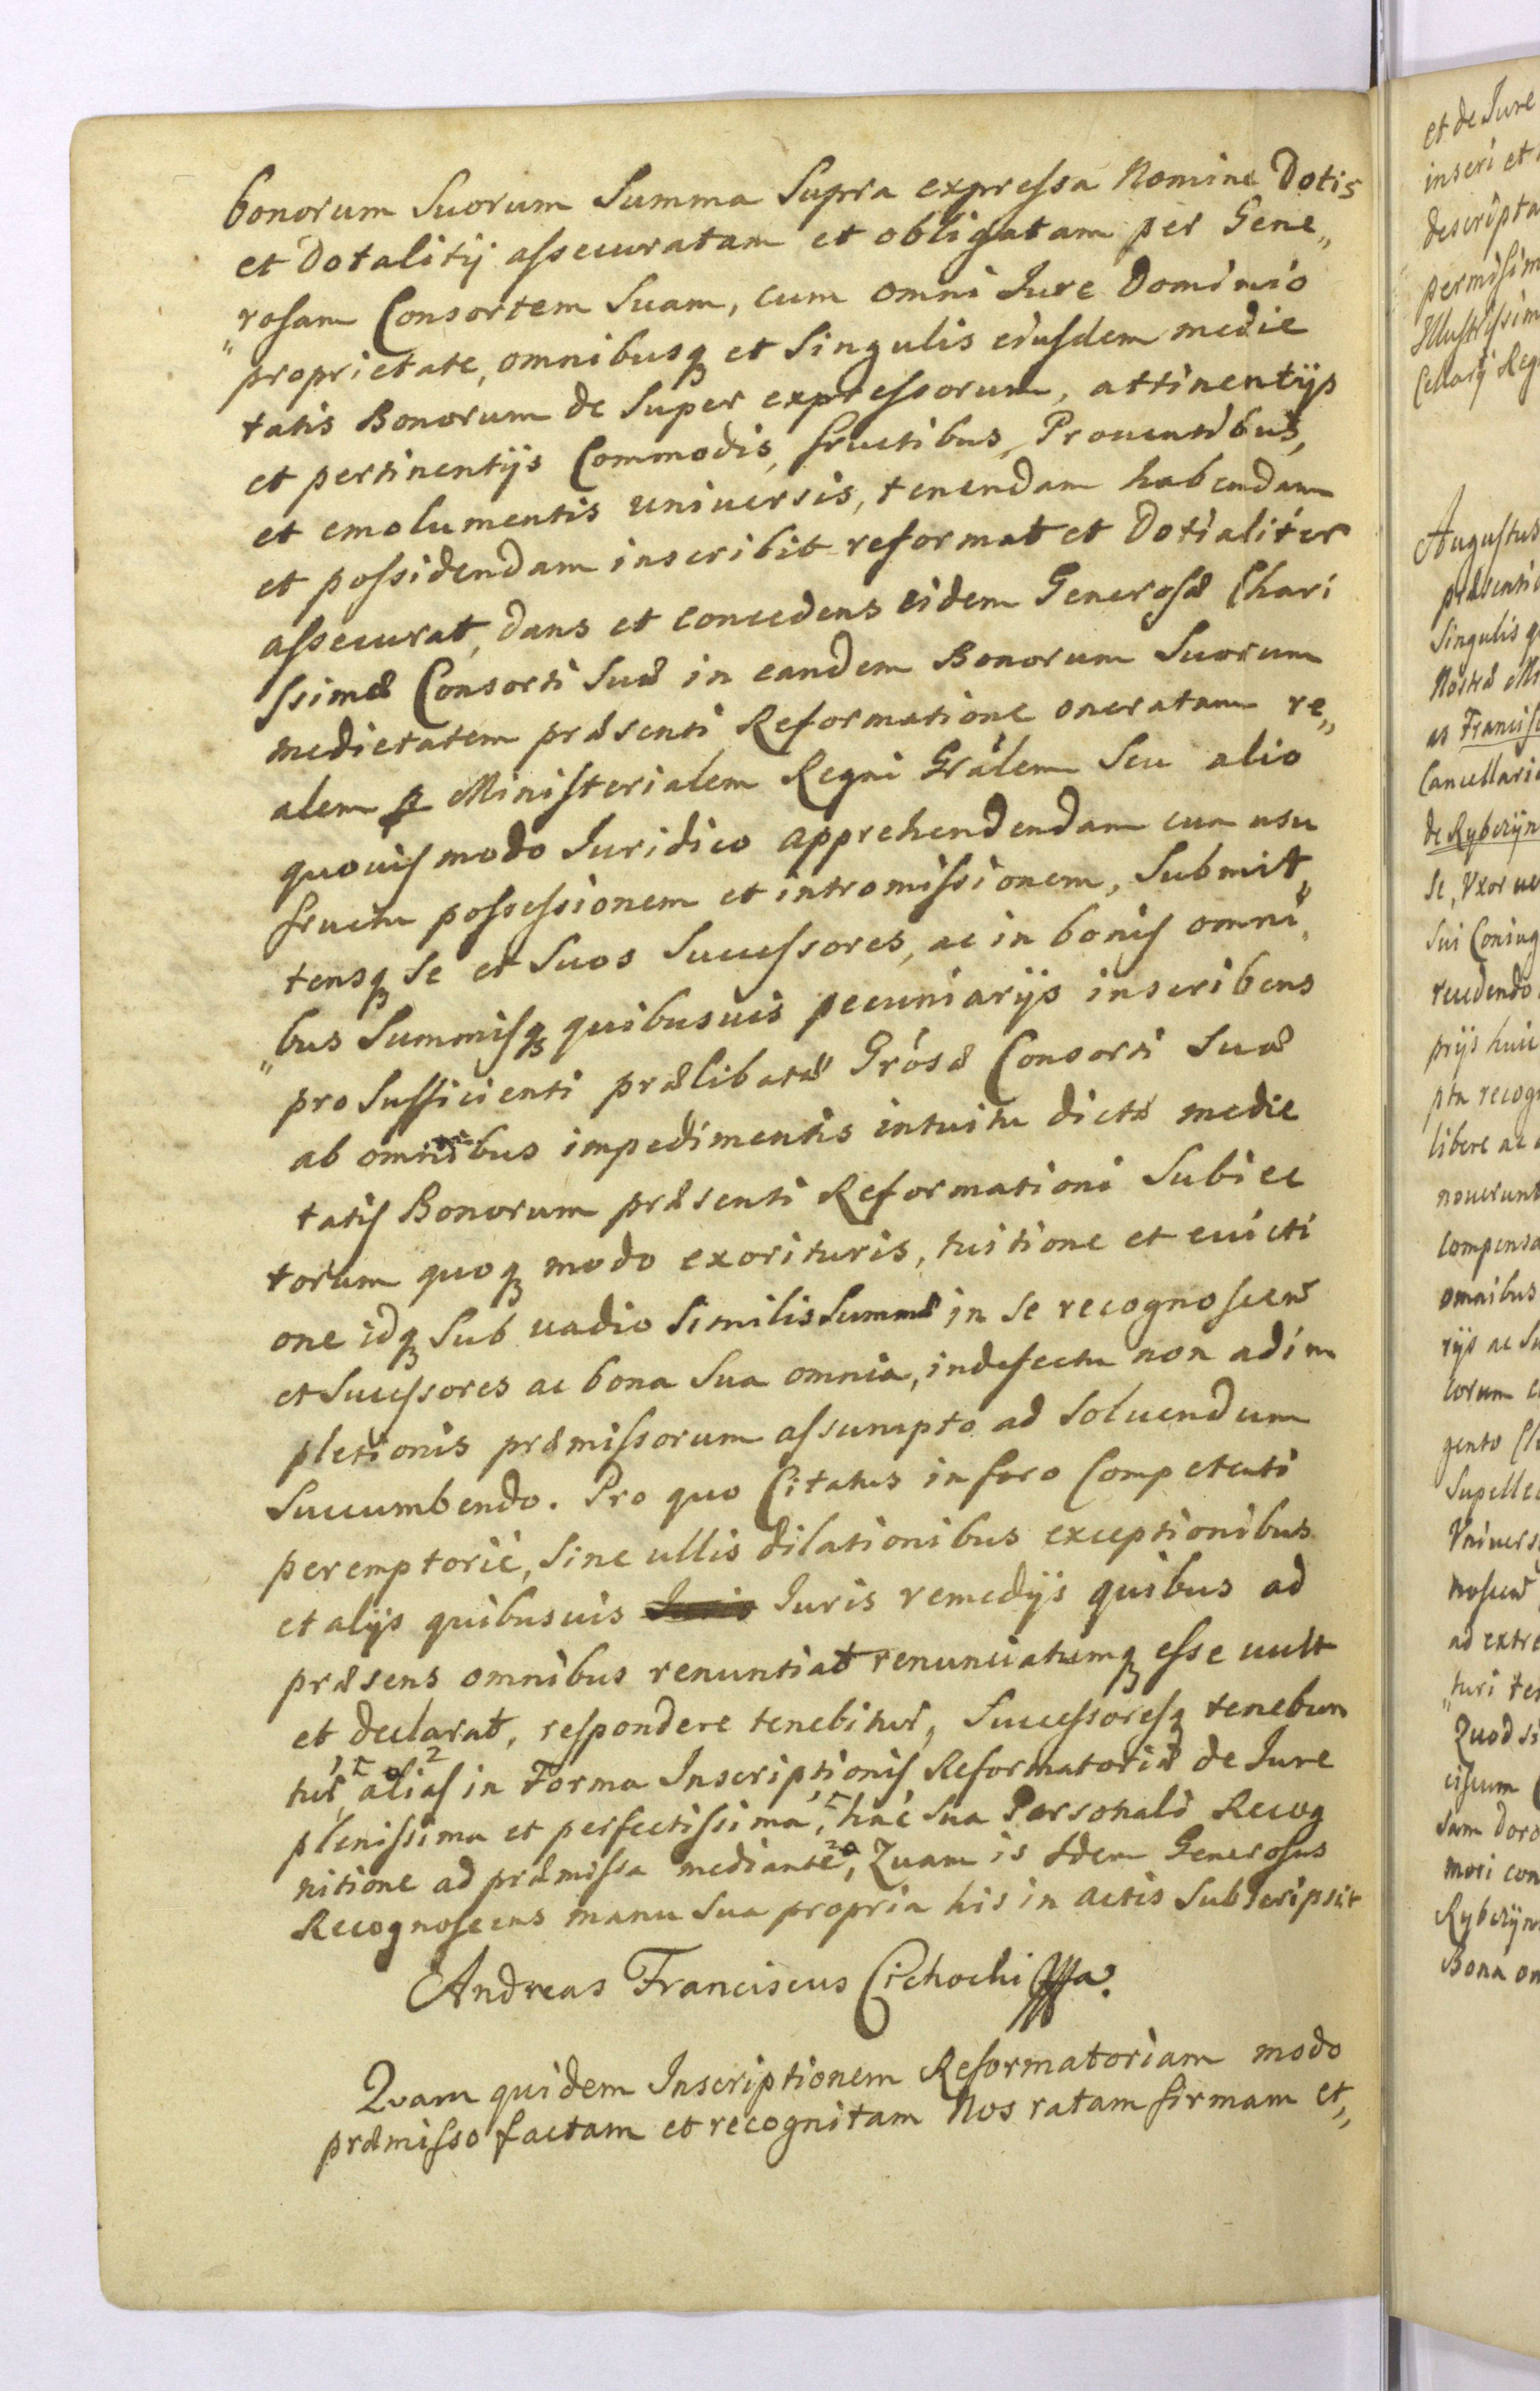 bonorum Suorum Summa Supra expressa Nomine Dotis
et Dotalitij assecuratam et obligatam per Gene„
„rosam Consortem Suam, cum omni Iure Dominio
proprietate, omnibusq et Singulis eiusdem medie
tatis Bonorum de Super expressorum, attinentijs
et pertinentijs Commodis, fructibus, Prouentibus,
et emolumentis uniuersis, tenendam habendam
et possidendam inscribit reformat et Dotialiter
assecurat, dans et concedens eidem Generosæ Chari
ssimæ Consorti Suæ in eandem Bonorum Suorum
medietatem præsenti Reformatione oneratam re„
alem p Ministerialem Regni Grãlem Seu alio
quouis modo Iuridico apprehendendam cum usu
fructu possessionem et intromissionem, Submit„
tensq Se et Suos Successores, ac in bonis omni„
„bus Summisq quibusuis pecuniarijs inscribens
pro Sufficienti prælibatæ Grosæ Consorti Suæ
ab omnibus impedimentis intuitu dictæ medie
tatis Bonorum præsenti Reformationi Subiec
torum quoq modo exorituris, tuitione et euicti
one idq Sub uadio Similis Summæ in Se recognoscens
et Sucessores ac bona Sua omnia, in defectu non adim
pletionis præmissorum assumpto ad Soluendum
Succumbendo. Pro quo Citatus in foro Competenti
peremptorie, Sine ullis dilationibus exceptionibus
et alijs quibusuis Iuris Iuris remedijs quibus ad
præsens omnibus renuntiat renunciatumq esse uult
et declarat, respondere tenebitur, Successoresq tenebun
tur, alias in Forma Inscriptionis Reformatoriæ de Iure
plenissima et perfectissima, hac Sua Personali Recog
nitione ad præmissa mediante, Quam is Idem Generosus
Recognoscens manu Sua propria his in actis Subscripsit
Andreas Franciscus Cichocki
Quam quidem Inscriptionem Reformatoriam modo
præmisso factam et recognitam Nos ratam firmam et„
et de Iure
inseri et
descripta
Augustus
Singulis
de Rybczyn
Se, Vxor
ad extre
Quod si
mori con
Rybczyn
Bona om